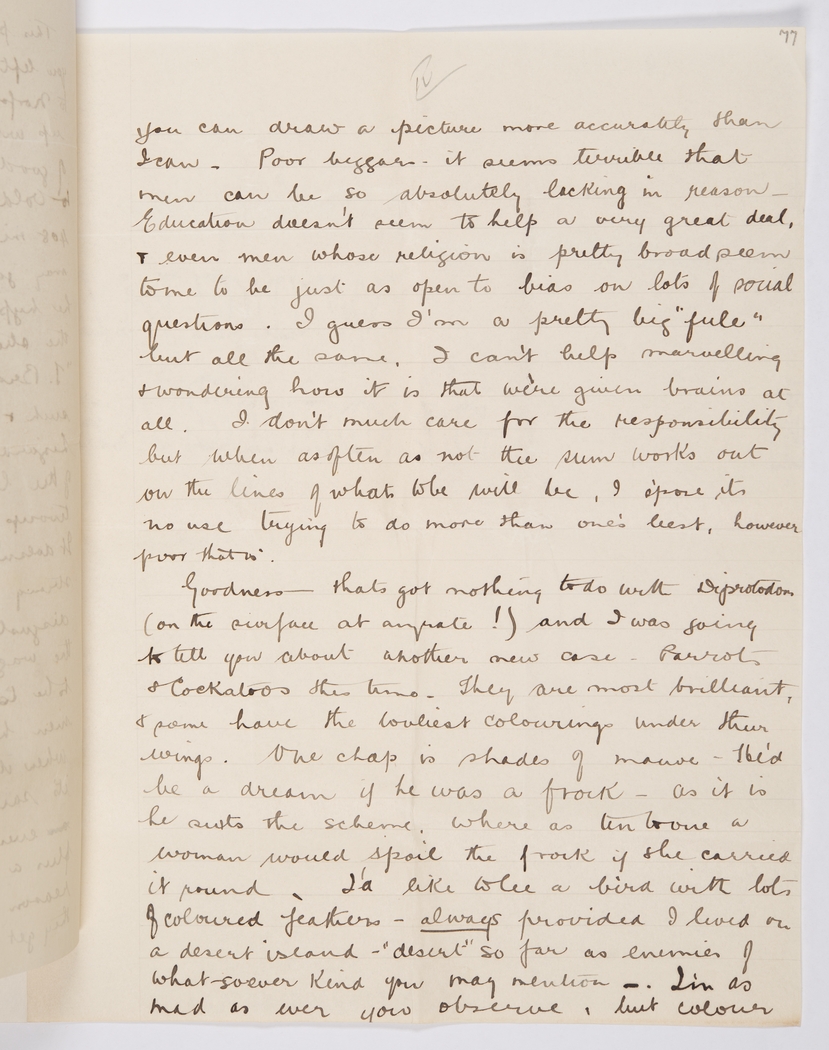 77
IV
you can draw a picture more accurately than
I can - Poor beggars - it seems terrible that
men can be so absolutely lacking in reason -
Education doesn't seem to help a very great deal,
& even men whose religion is pretty broad seem
to me to be just as open to bias on lots of social
questions. I guess I'm a pretty big "fule"
but all the same, I can't help marvelling
& wondering how it is that we're given brains at
all. I don't much care for the responsibility
but when as often as not the sum works out
on the lines of whats to be will be, I s'pose its
no use trying to do more than one's best, however
poor that is.
Goodness - thats got nothing to do with Diprotodons
(on the surface at anyrate!) and I was going
to tell you about another new case - Parrots
& Cockatoos this time - They are most brilliant,
& some have the lovliest colourings under their
wings. One chap is shades of mauve - He'd
be a dream if he was a frock - as it is
he suits the scheme, where as ten to one a
woman would spoil the frock if she carried
it round. I'd like to be a bird with lots
of coloured feathers - always provided I lived on
a desert island - "desert" so far as enemies of
what-so-ever kind you may mention -. I'm as
mad as ever you observe, but colour